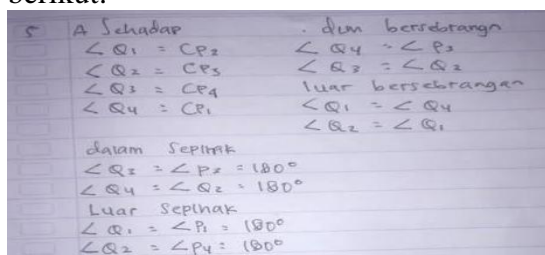 berikut.
5 A Sehadap
∠Q1 = CP2
∠Q2 = CP3
∠Q3 = CP4
∠Q4 = CP1
dalam Sepihak
∠Q3 = ∠P2 = 180°
∠Q4 = ∠Q2 = 180°
Luar Sepihak
∠Q1 = ∠P1 = 180°
∠Q2 = ∠P4 = 180°
bersebrangn
∠Q4 = ∠P2
∠Q3 = ∠Q2
luar bersebrangan
∠Q1 = ∠Q4
∠Q2 = ∠Q1